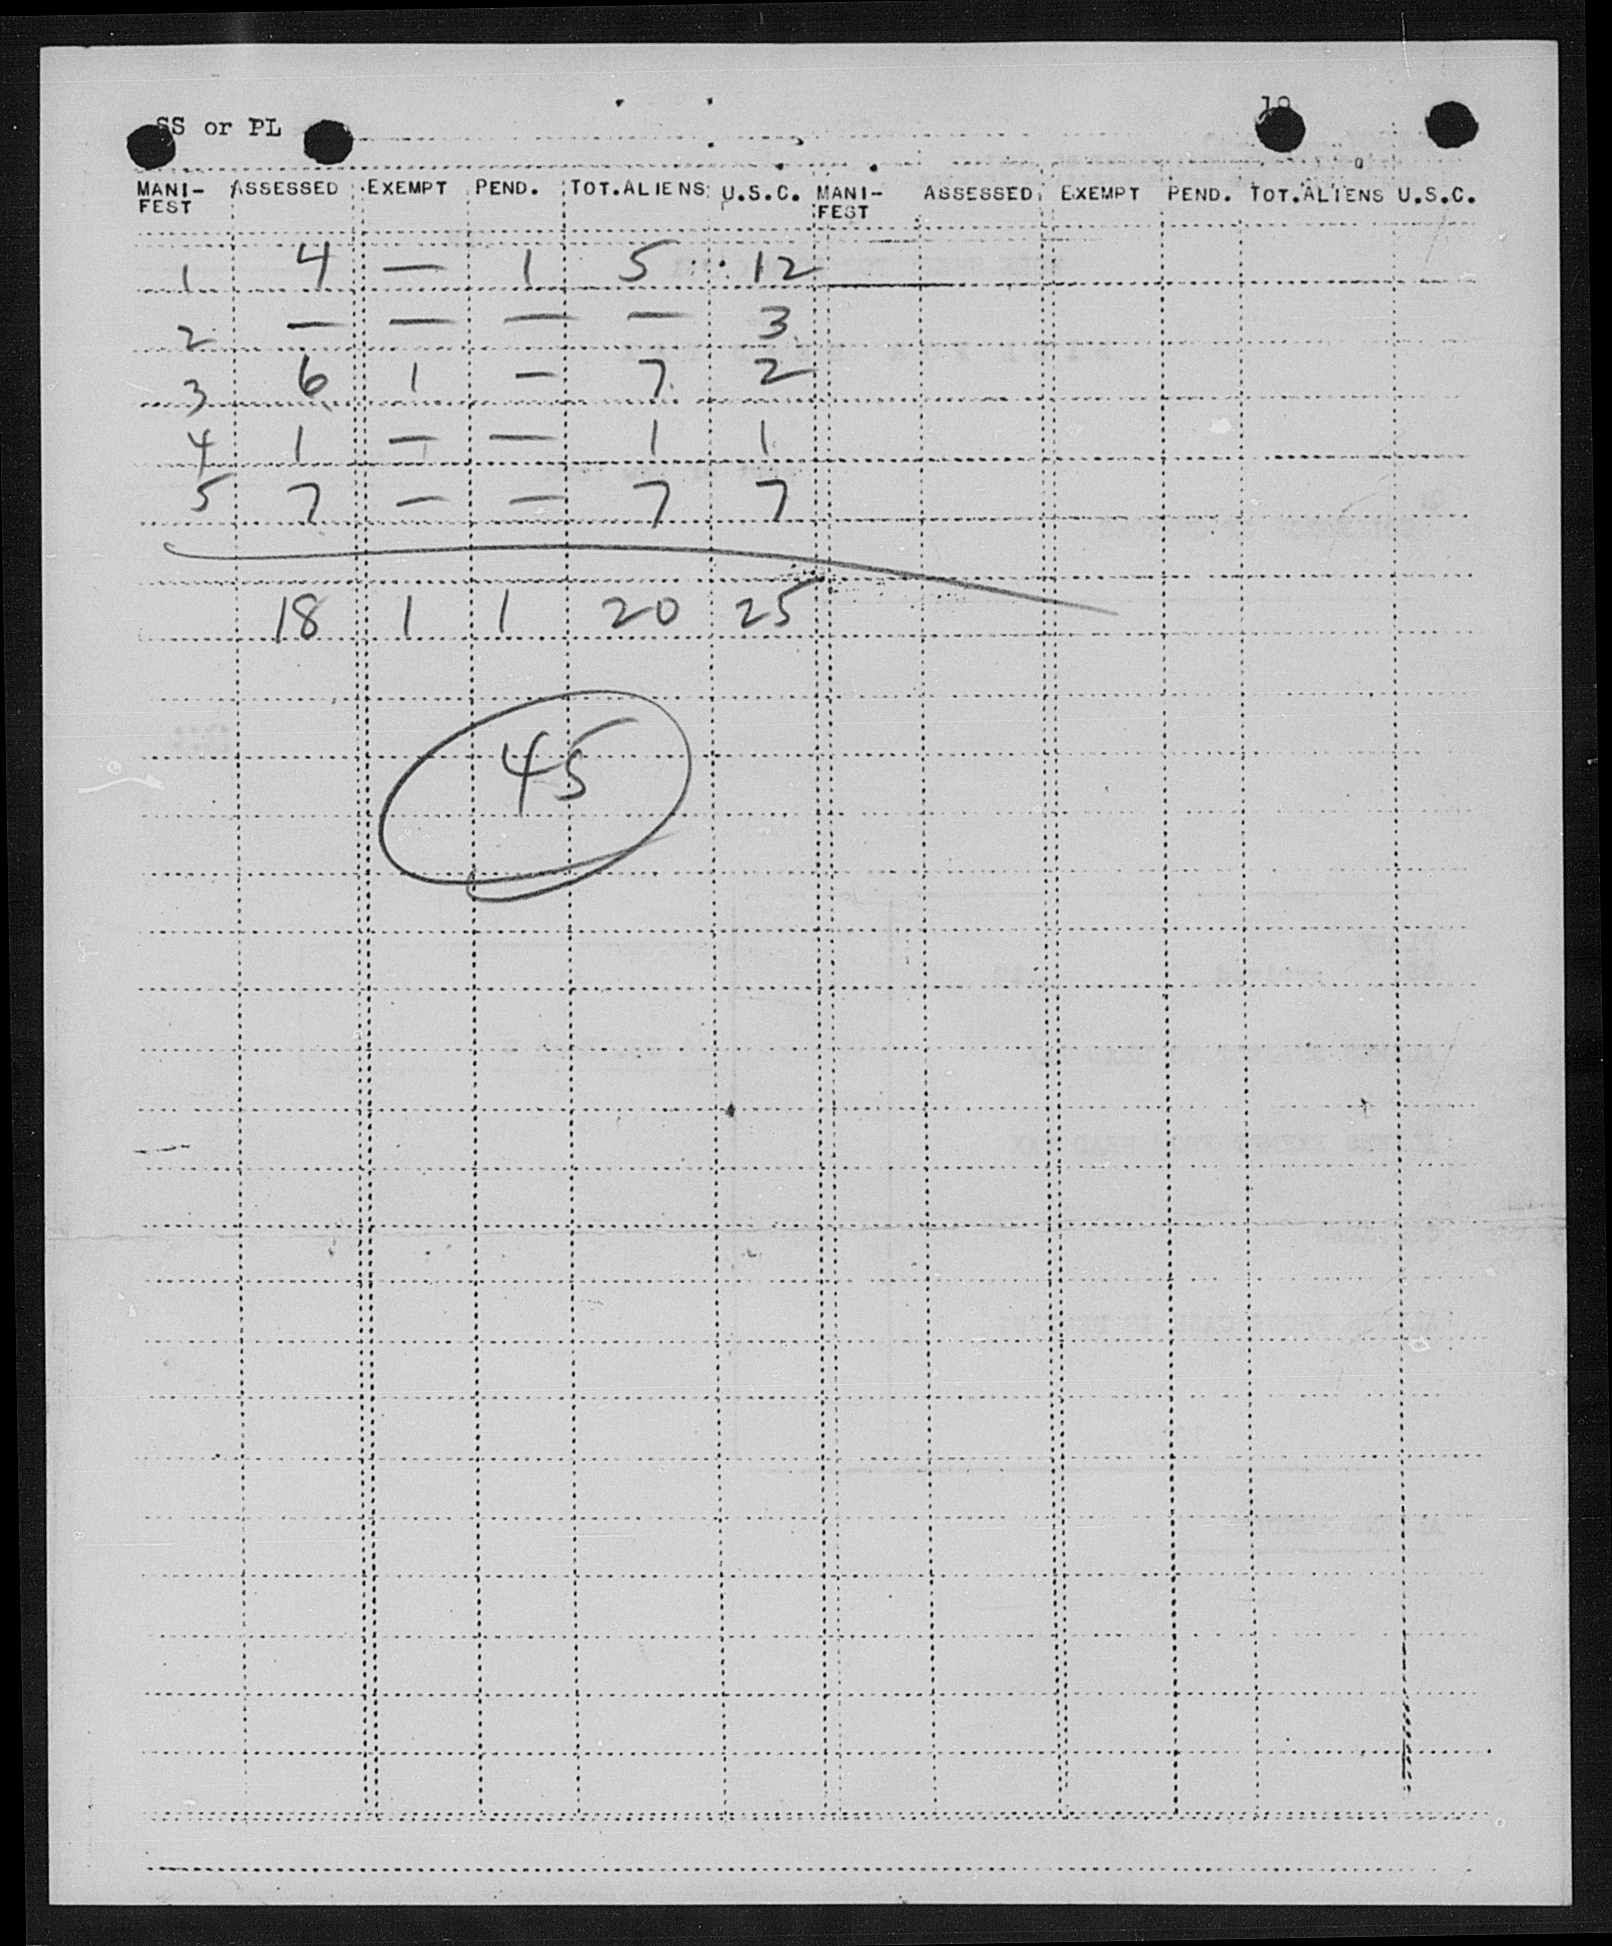 SS or PL 19
MANI-FEST ASSESSED EXEMPT PEND. TOT.ALIENS U.S.C. MANI-FEST ASSESSED EXEMPT PEND. TOT.ALIENS U.S.C.
1 4 — 1 5 12
2 — — — — 3
3 6 1 — 7 2
4 1 — — 1 1
5 7 — — 7 7
18 1 1 20 25
45